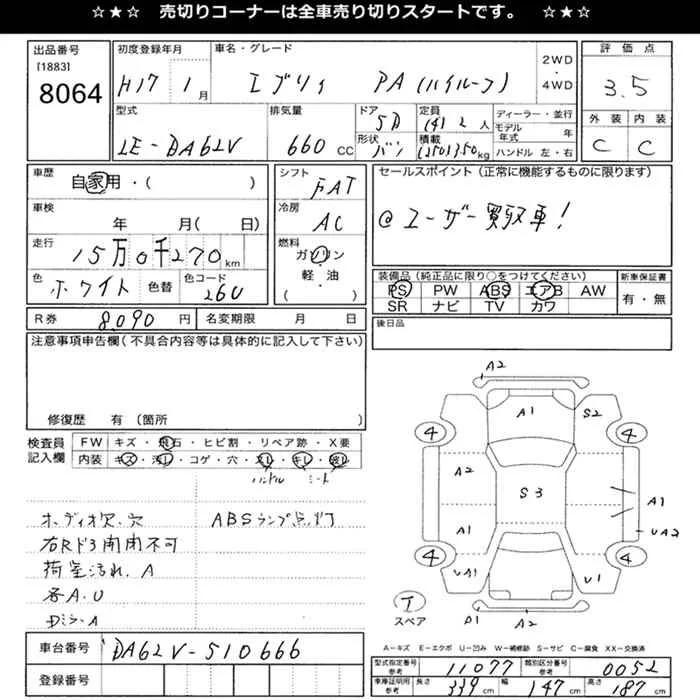 ☆★☆ 売切りコーナーは全車売り切りスタートです。 ☆★☆
出品番号 [1883] 8064
初度登録年月 H17 1月
車名・グレード エブリイ PA (ハイルーフ)
2WD ・ 4WD
評価点 3.5
外装 内装
C C
型式 LE-DA62V
排気量 660 CC
ドア 5D
形状 バン
定員 (4) 2 人
積載 (250) 350 kg
ディーラー・並行
モデル年式 年
ハンドル 左・右
車歴 自家用・( )
シフト FAT
車検 年 月( 日)
冷房 AC
走行 15万0千270 km
燃料 ガソリン・軽・油 ( )
色 ホワイト 色替 色コード 26U
セールスポイント (正常に機能するものに限ります)
@ユーザー買取車!
装備品 (純正品に限り○をつけてください)
PS PW ABS エアB AW
SR ナビ TV カワ
新車保証書 有・無
R券 8,090 円 名変期限 月 日
後日品
注意事項申告欄 (不具合内容等は具体的に記入して下さい)
修復歴 有 (箇所 )
検査員記入欄
FW キズ・飛石・ヒビ割・リペア跡・X要
内装 キズ・汚レ・コゲ・穴・スレ・キレ・破レ
ハンドル シート
オーディオ欠.穴 ABSランプ点灯
右Rドア開閉不可
荷室汚れ.A
各A.U
車台番号 DA62V-510666
登録番号
A2
A1 S2
4 4
A2
S3
A1
A1 UA2
4 4
UA1 U1
T スペア
A1 A2
A-キズ E-エクボ U-凹み W-補修跡 S-サビ C-腐食 XX-交換済
型式指定番号 参考 11077 類別区分番号 参考 0052
車庫証明用 参考 長さ 339 cm 幅 147 cm 高さ 187 cm